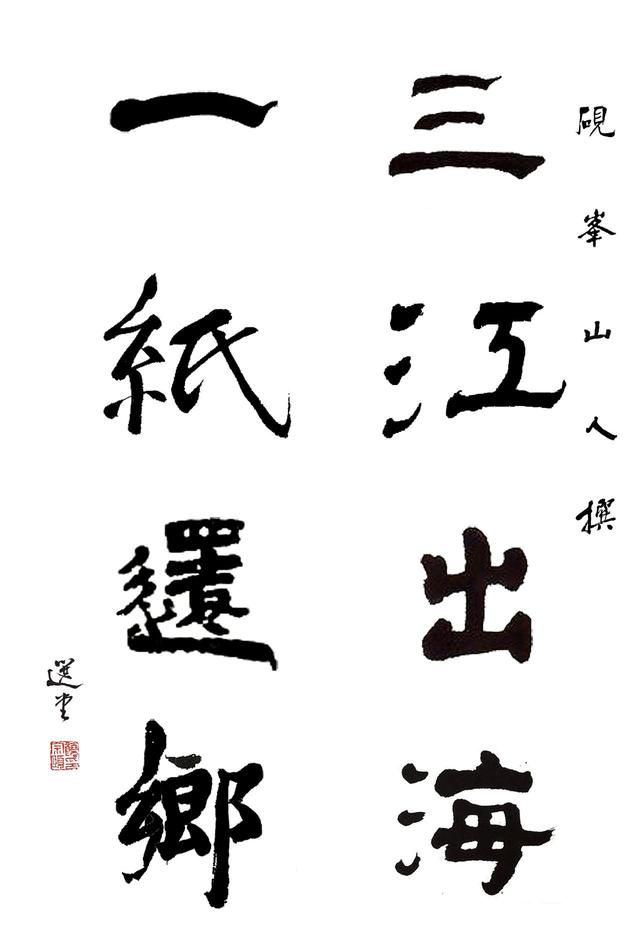 硯峯山人撰
三江出海
一紙還鄉
選堂